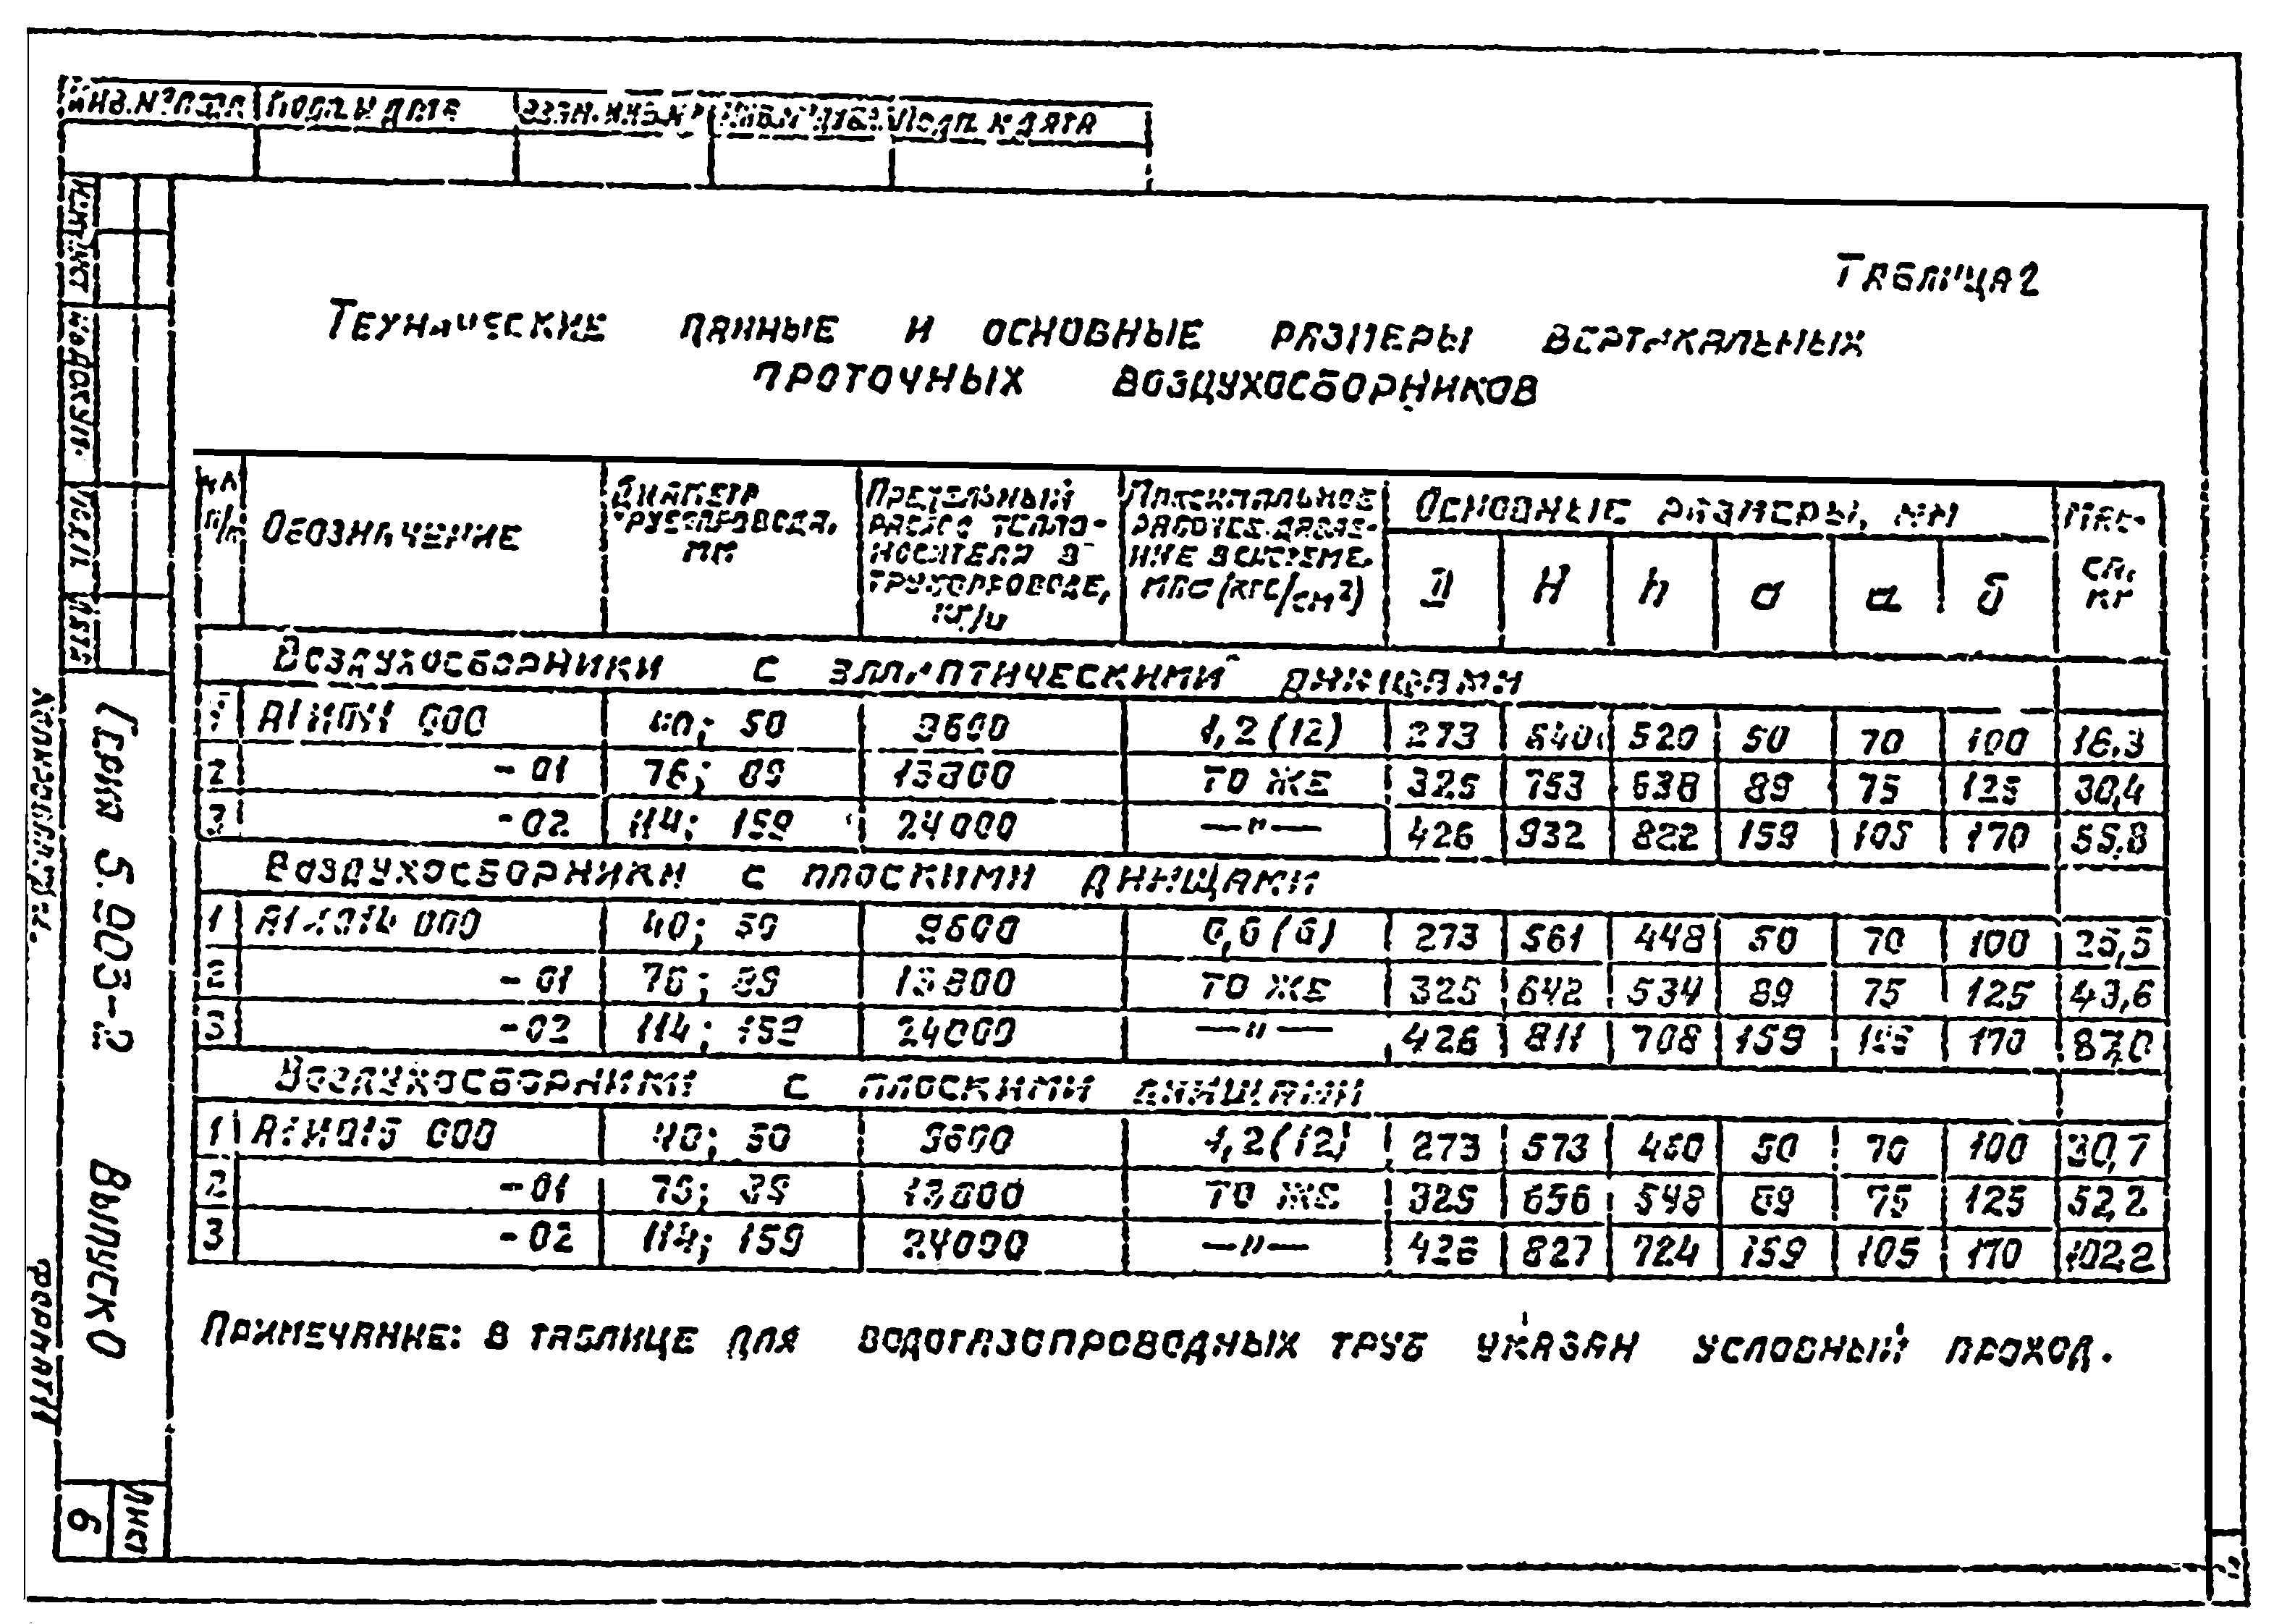 Инв.№ подл. Подп. и дата Взам. инв.№ Инв.№ дубл. Подп. и дата
Таблица 2
Технические данные и основные размеры вертикальных
проточных воздухосборников
№ п/п Обозначение Диаметр трубопровода, мм Предельный расход теплоносителя в трубопроводе, кг/ч Максимальное рабочее давление в системе, МПа (кгс/см²) Основные размеры, мм Масса, кг
D H h d a б
Воздухосборники с эллиптическими днищами
1 000 40; 50 9600 1,2 (12) 273 640 520 50 70 100 16,3
2 -01 76; 89 13800 то же 325 753 638 89 75 125 30,4
3 -02 114; 159 24000 —"— 426 932 822 159 105 170 55,8
Воздухосборники с плоскими днищами
1 000 40; 50 9600 0,6 (6) 273 561 448 50 70 100 25,5
2 -01 76; 89 13800 то же 325 642 534 89 75 125 43,6
3 -02 114; 159 24000 —"— 426 811 708 159 105 170 87,0
Воздухосборники с плоскими днищами
1 А1И015 000 40; 50 9600 1,2 (12) 273 573 460 50 70 100 30,7
2 -01 76; 89 13800 то же 325 656 548 89 75 125 52,2
3 -02 114; 159 24000 —"— 426 827 724 159 105 170 102,2
Примечание: в таблице для водогазопроводных труб указан условный проход.
Изм. Лист № докум. Подп. Дата
Серия 5.903-2 Выпуск 0
Лист
6
Копировал:
Формат 11